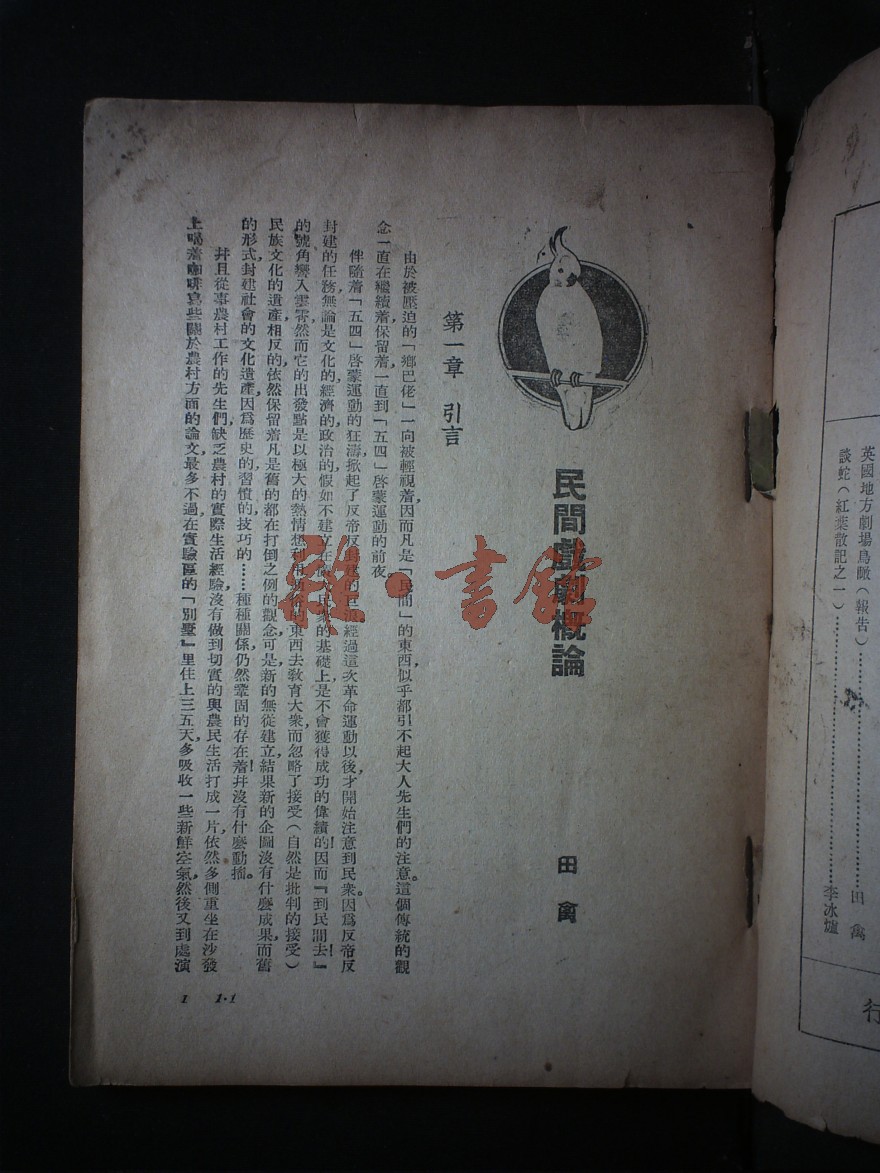 民間戲劇概論
田禽
第一章 引言
由於被壓迫的「鄉巴佬」一向被輕視着因而凡是「民間」的東西,似乎都引不起大人先生們的注意。這個傳統的觀
念一直在繼續着保留着一直到「五四」啓蒙運動的前夜。
伴隨着「五四」啓蒙運動的狂濤掀起了反帝反封建的 經過這次革命運動以後,才開始注意到民衆。因爲反帝反
封建的任務無論是文化的,經濟的,政治的,假如不建立在 民衆的基礎上是不會獲得成功的偉績的!因而『到民間去』!
的號角響入雲霄,然而它的出發點是以極大的熱情想利用 的東西去敎育大衆而忽略了接受(自然是批判的接受)
民族文化的遺產,相反的,依然保留着凡是舊的都在打倒之例的觀念,可是,新的無從建立,結果,新的企圖沒有什麼成果,而舊
的形式,封建社會的文化遺產,因爲歷史的,習慣的,技巧的……種種關係仍然鞏固的存在着!幷沒有什麼動搖。
幷且從事農村工作的先生們,缺乏農村的實際生活經驗,沒有做到切實的與農民生活打成一片,依然多側重坐在沙發
上喝着咖啡寫些關於農村方面的論文,最多不過在實驗區的「別墅』里住上三五天,多吸收一些新鮮空氣,然後又到處演
1 1·1
英國地方劇場鳥瞰(報告)……田禽
談蛇(紅葉散記之一)……李冰爐
行
雜·書館